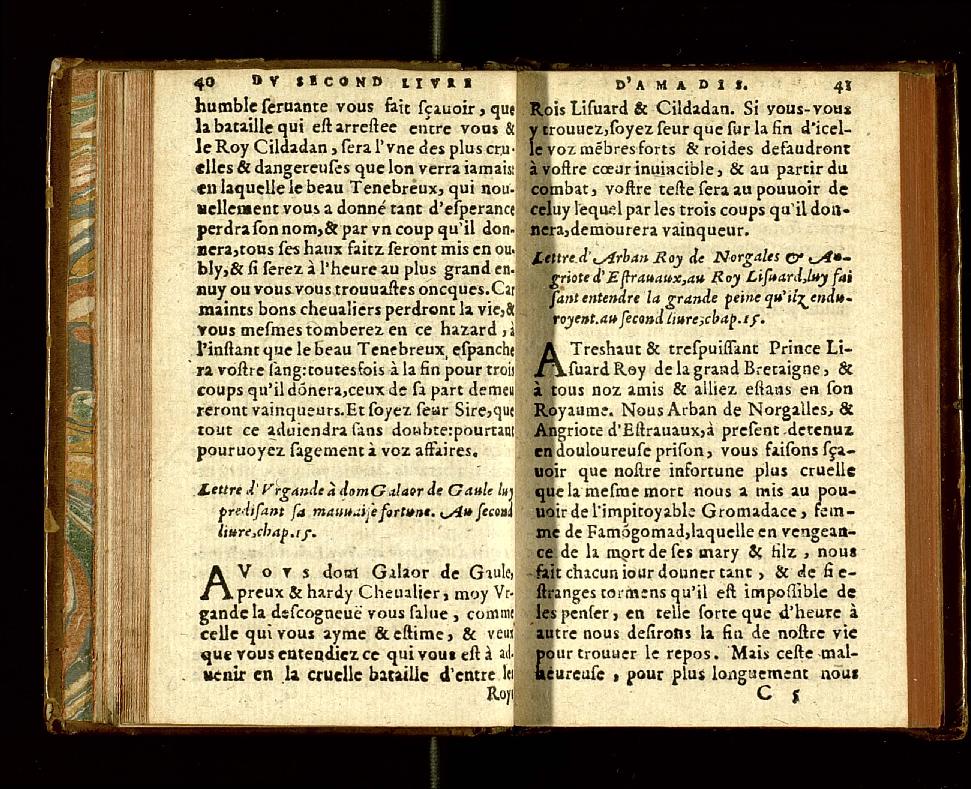 40 DV SECOND LIVRE
humble ſeruante vous fait ſçauoir, que
la bataille qui eſt arreſtee entre vous &
le Roy Cildadan, ſera l'vne des plus cru-
elles & dangereuſes que lon verra iamais:
en laquelle le beau Tenebreux, qui nou-
uellement vous a donné tant d'eſperance
perdra ſon nom,& par vn coup qu'il don-
nera,tous ſes haux faitz ſeront mis en ou-
bly,& ſi ſerez à l'heure au plus grand en-
nuy ou vous vous trouuaſtes oncques. Car
maints bons cheualiers perdront la vie,&
vous meſmes tomberez en ce hazard, à
l'inſtant que le beau Tenebreux eſpanche
ra voſtre ſang:toutesfois à la fin pour trois
coups qu'il dónera,ceux de ſa part demeu
reront vainqueurs.Et ſoyez ſeur Sire,que
tout ce aduiendra ſans doubte:pourtant
pouruoyez ſagement à voz affaires.
Lettre d'Vrgande à dom Galaor de Gaule luy
prediſant ſa mauuaiſe fortune. Au ſecond
liure,chap.15.
A Vovs dom Galaor de Gaule,
preux & hardy Cheualier, moy Vr-
gande la deſcogneuë vous ſalue, comme
celle qui vous ayme & eſtime, & veux
que vous entendiez ce qui vous eſt à ad-
uenir en la cruelle bataille d'entre les
Roys
D'AMADIS. 41
Rois Liſuard & Cildadan. Si vous-vous
y trouuez,ſoyez ſeur que ſur la fin d'icel-
le voz mẽbres forts & roides defaudront
à voſtre cœur inuincible, & au partir du
combat, voſtre teſte ſera au pouuoir de
celuy lequel par les trois coups qu'il don-
nera,demourera vainqueur.
Lettre d'Arban Roy de Norgales & An-
griote d'Eſtrauaux,au Roy Liſuard,luy fai
ſant entendre la grande peine qu'ilz endu-
royent.au ſecond liure,chap.15.
A Treshaut & treſpuiſſant Prince Li-
ſuard Roy de la grand Bretaigne, &
à tous noz amis & alliez eſtans en ſon
Royaume. Nous Arban de Norgalles, &
Angriote d'Eſtrauaux,à preſent detenuz
en douloureuſe priſon, vous faiſons ſça-
uoir que noſtre infortune plus cruelle
que la meſme mort nous a mis au pou-
uoir de l'impitoyable Gromadace, fem-
me de Famógomad,laquelle en vengean-
ce de la mort de ſes mary & filz, nous
fait chacun iour donner tant, & de ſi e-
ſtranges tormens qu'il eſt impoſſible de
les penſer, en telle ſorte que d'heure à
autre nous deſirons la fin de noſtre vie
pour trouuer le repos. Mais ceſte mal-
heureuſe, pour plus longuement nous
C 5